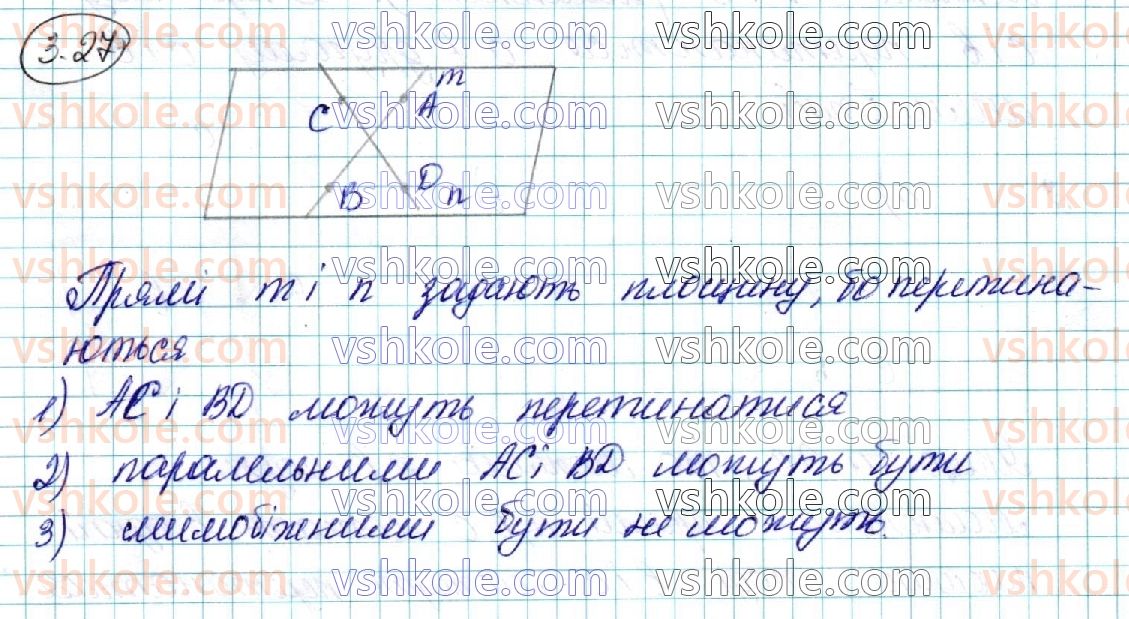 3.27
m
C A
B D n
Прямі m і n задають площину, бо перетина-
ються
1) AC і BD можуть перетинатися
2) паралельними AC і BD можуть бути
3) мимобіжними бути не можуть.
vshkole.com